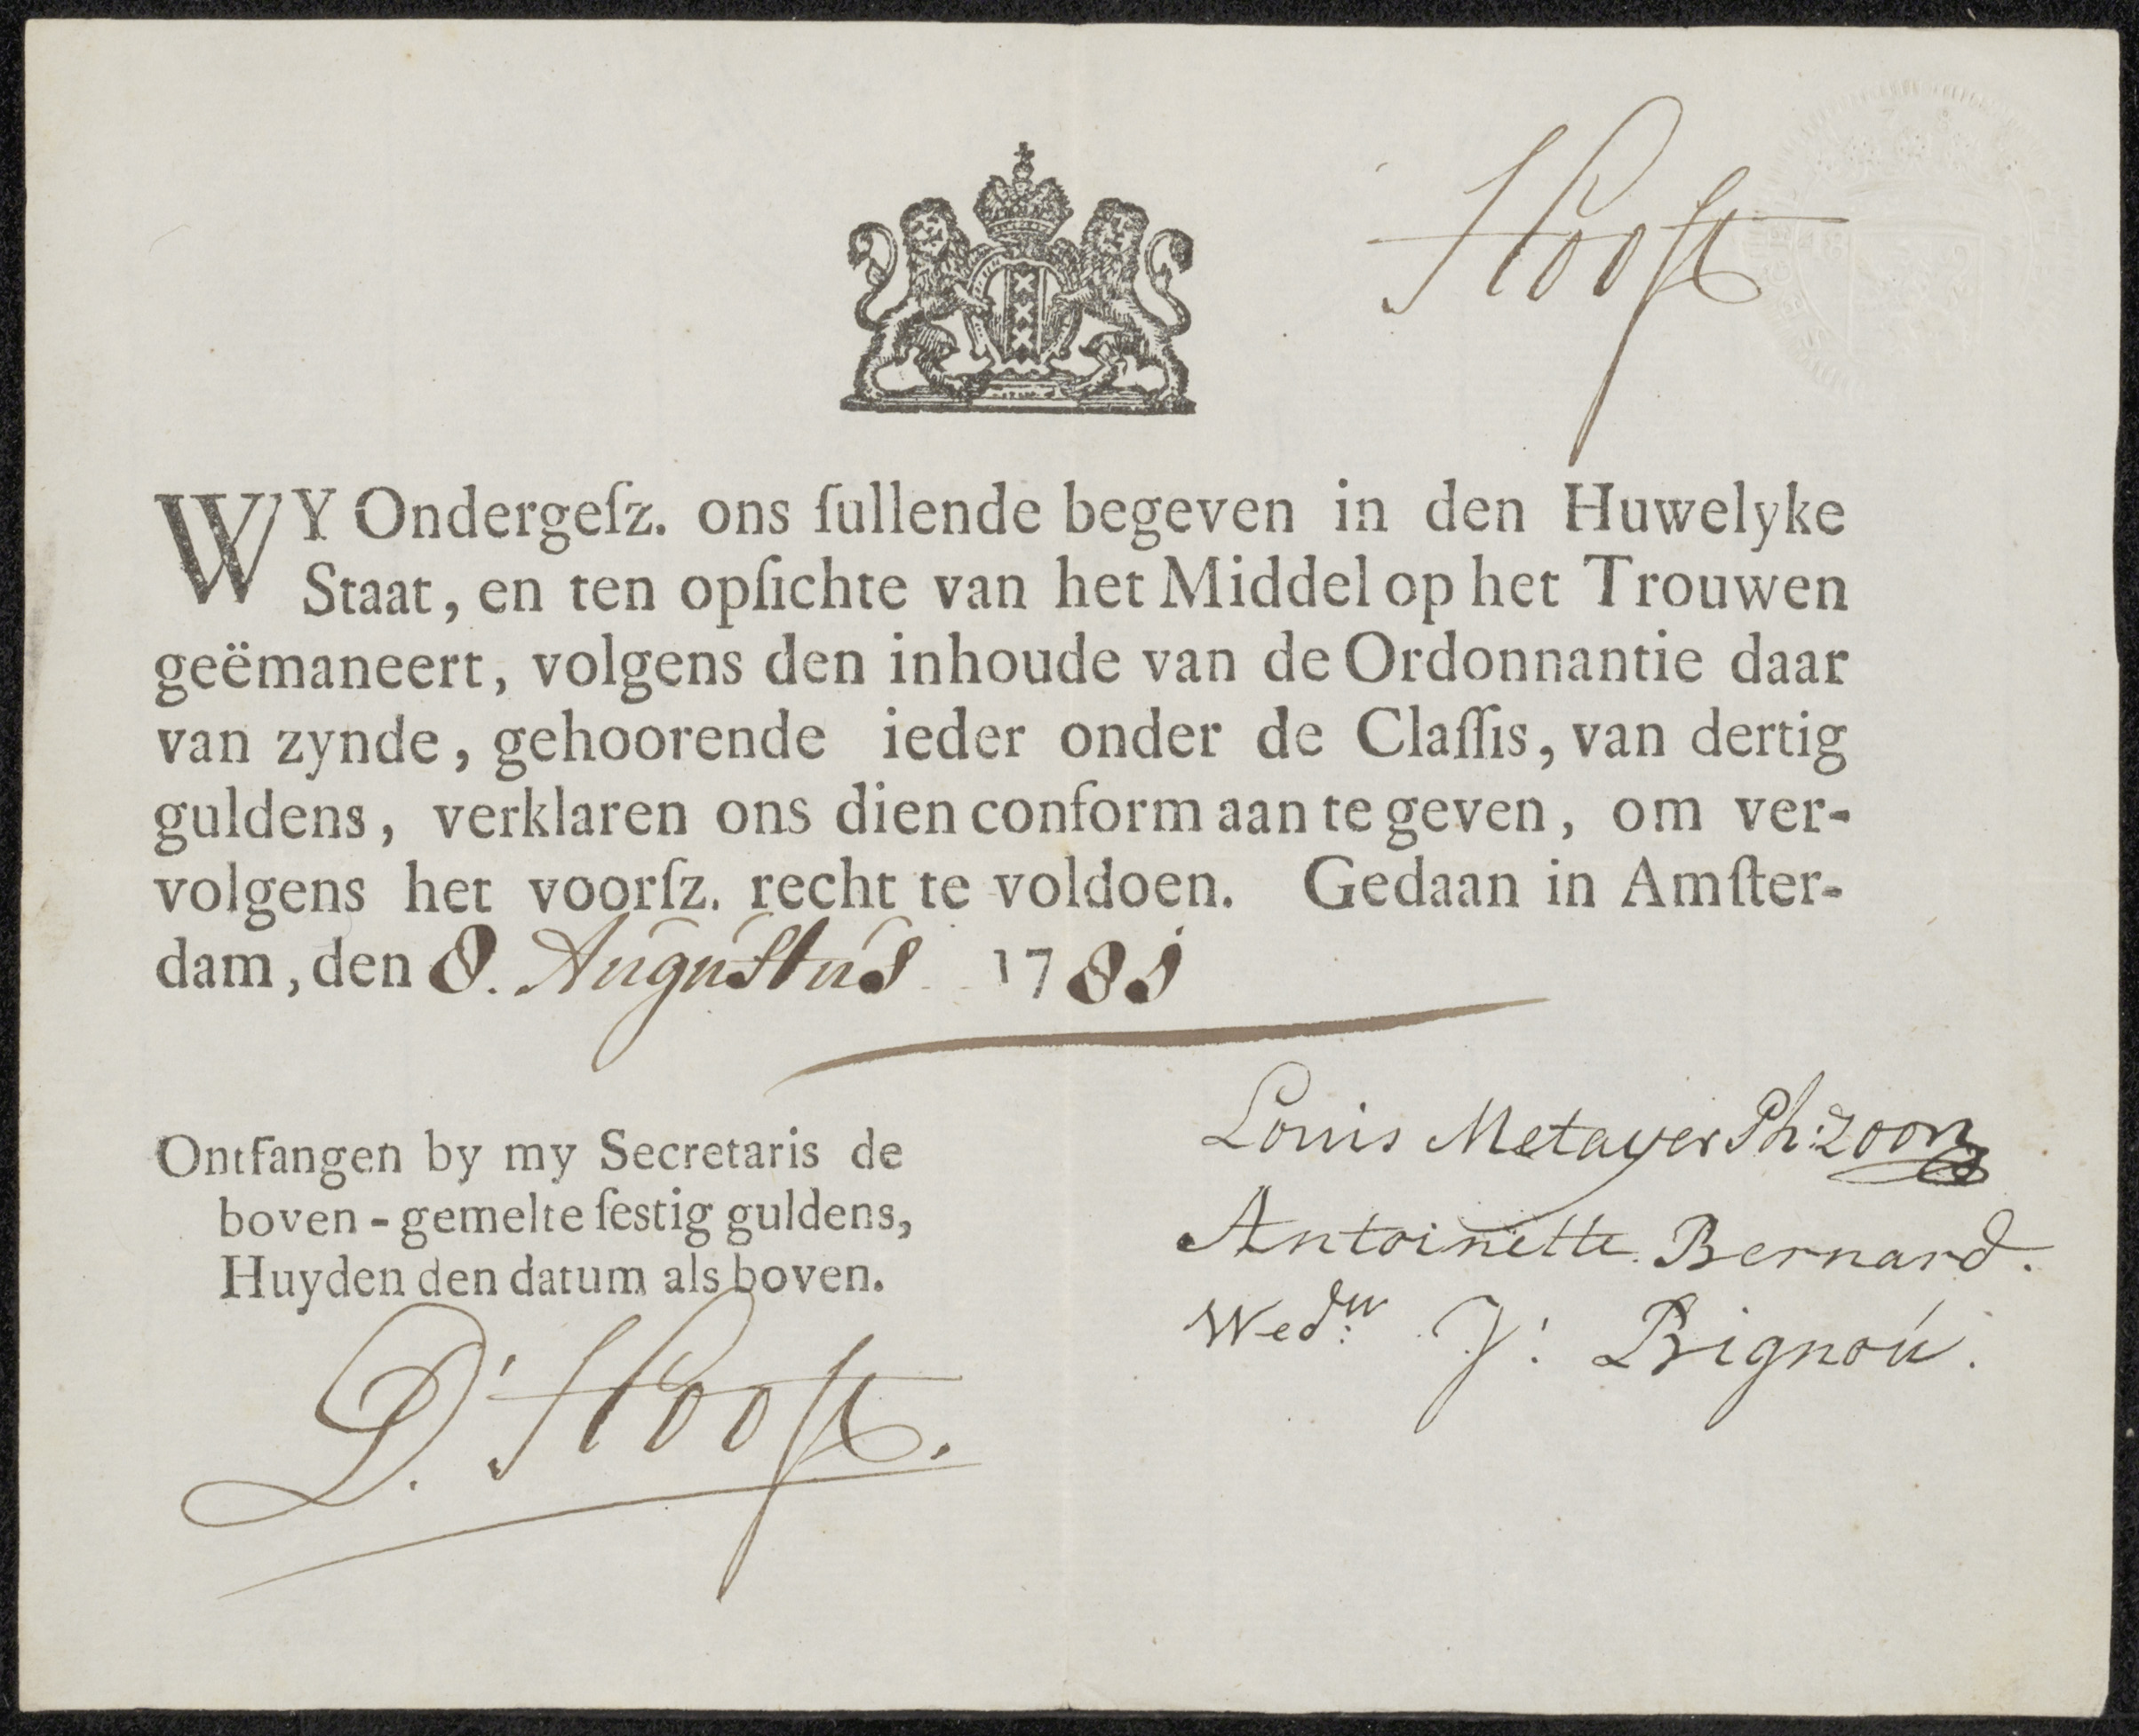 Hooft
WY Ondergeſz. ons ſullende begeven in den Huwelyke
Staat, en ten opſichte van het Middel op het Trouwen
geëmaneert, volgens den inhoude van de Ordonnantie daar
van zynde, gehoorende ieder onder de Claſſis, van dertig
guldens, verklaren ons dien conform aan te geven, om ver-
volgens het voorſz. recht te voldoen. Gedaan in Amſter-
dam, den 8. Augustus 1781
Ontfangen by my Secretaris de
boven-gemelte ſestig guldens,
Huyden den datum als boven.
D. Hooft.
Louis Metayer Ph:zoon
Antoinette Bernard.
Wedw J: Bignon.